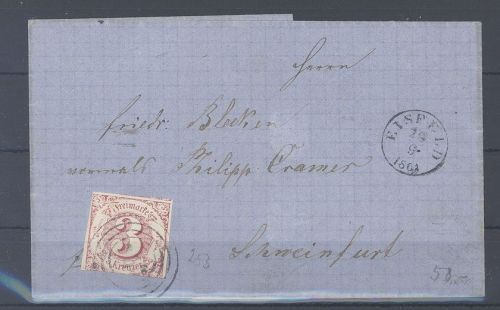 Herrn
Friedr. Blecken
vormals Philipp Cramer
Schweinfurt
EISFELD
1861
Freimarke
3
Kreuzer
253